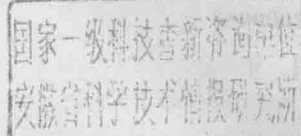 国家一级科技查新咨询单位
安徽省科学技术情报研究所